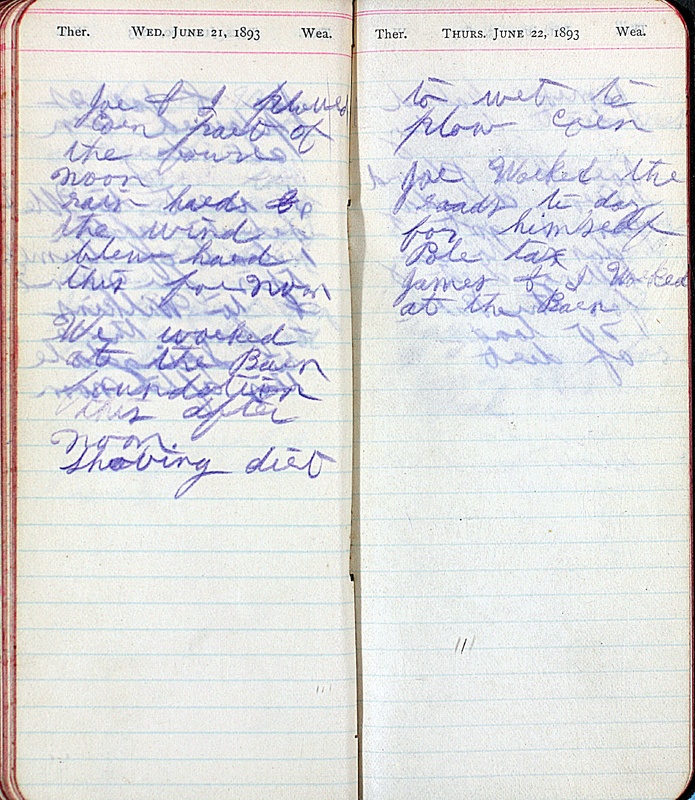 Ther. WED. JUNE 21, 1893 Wea.
Joe & I plowed
Corn part of
the fore
noon
rain hard &
the wind
blew hard
this fore noon
We worked
at the Barn
foundation
this after
noon.
Shoving dirt
Ther. THURS. JUNE 22, 1893 Wea.
to wet to
plow corn
Joe Worked the
roads to day
for himself
Pole tax
James & I Worked
at the Barn